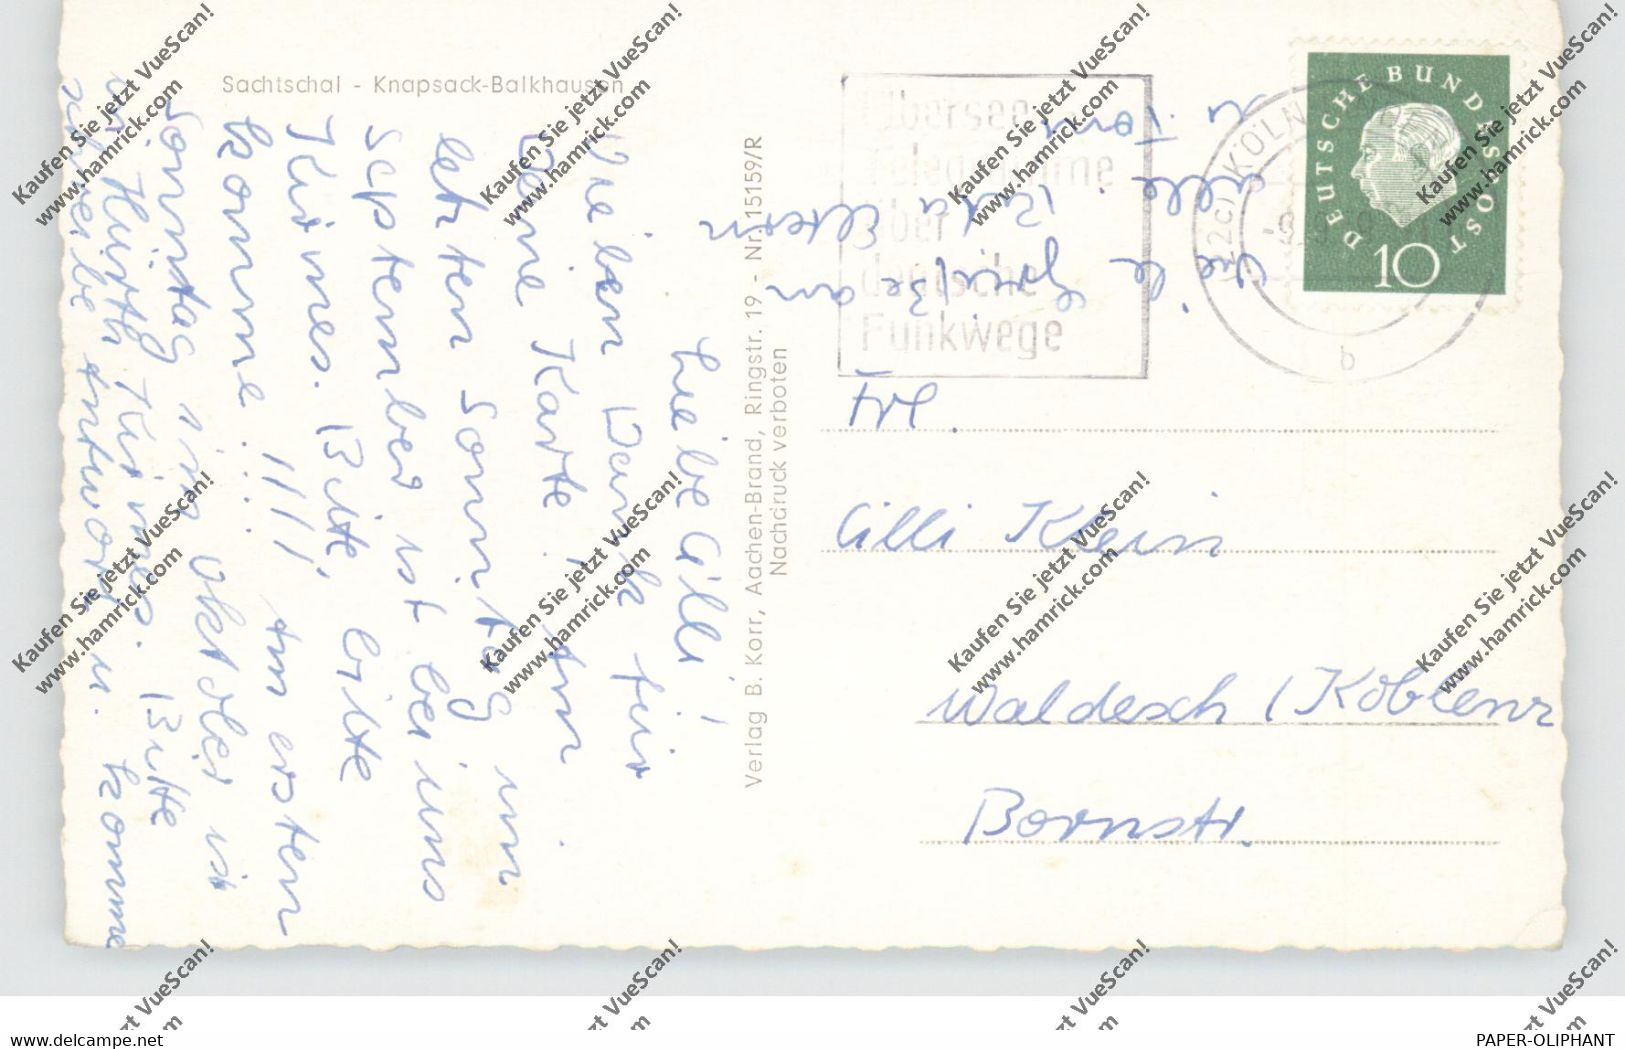 Sachtschal - Knapsack-Balkhausen
Liebe Cilli!
Vielen Dank für
Deine Karte. Am
letzten Sonntag im
September ist bei uns
Kirmes. Bitte, bitte
komme....!!!! Am ersten
Sonntag im Oktober ist
in Hürth Kirmes. Bitte
schreibe Antwort u. komme
Verlag B. Korr, Aachen-Brand, Ringstr. 19 - Nr. 15159/R
Nachdruck verboten
Viele Grüße an
Eltern
alle.
Übersee
Telegramme
über
deutsche
Funkwege
(22c) KÖLN
b
DEUTSCHE BUNDESPOST
10
Frl.
Cilli Klein
Waldesch / Koblenz
Bornstr.
Kaufen Sie jetzt VueScan!
www.hamrick.com
www.delcampe.net
PAPER-OLIPHANT